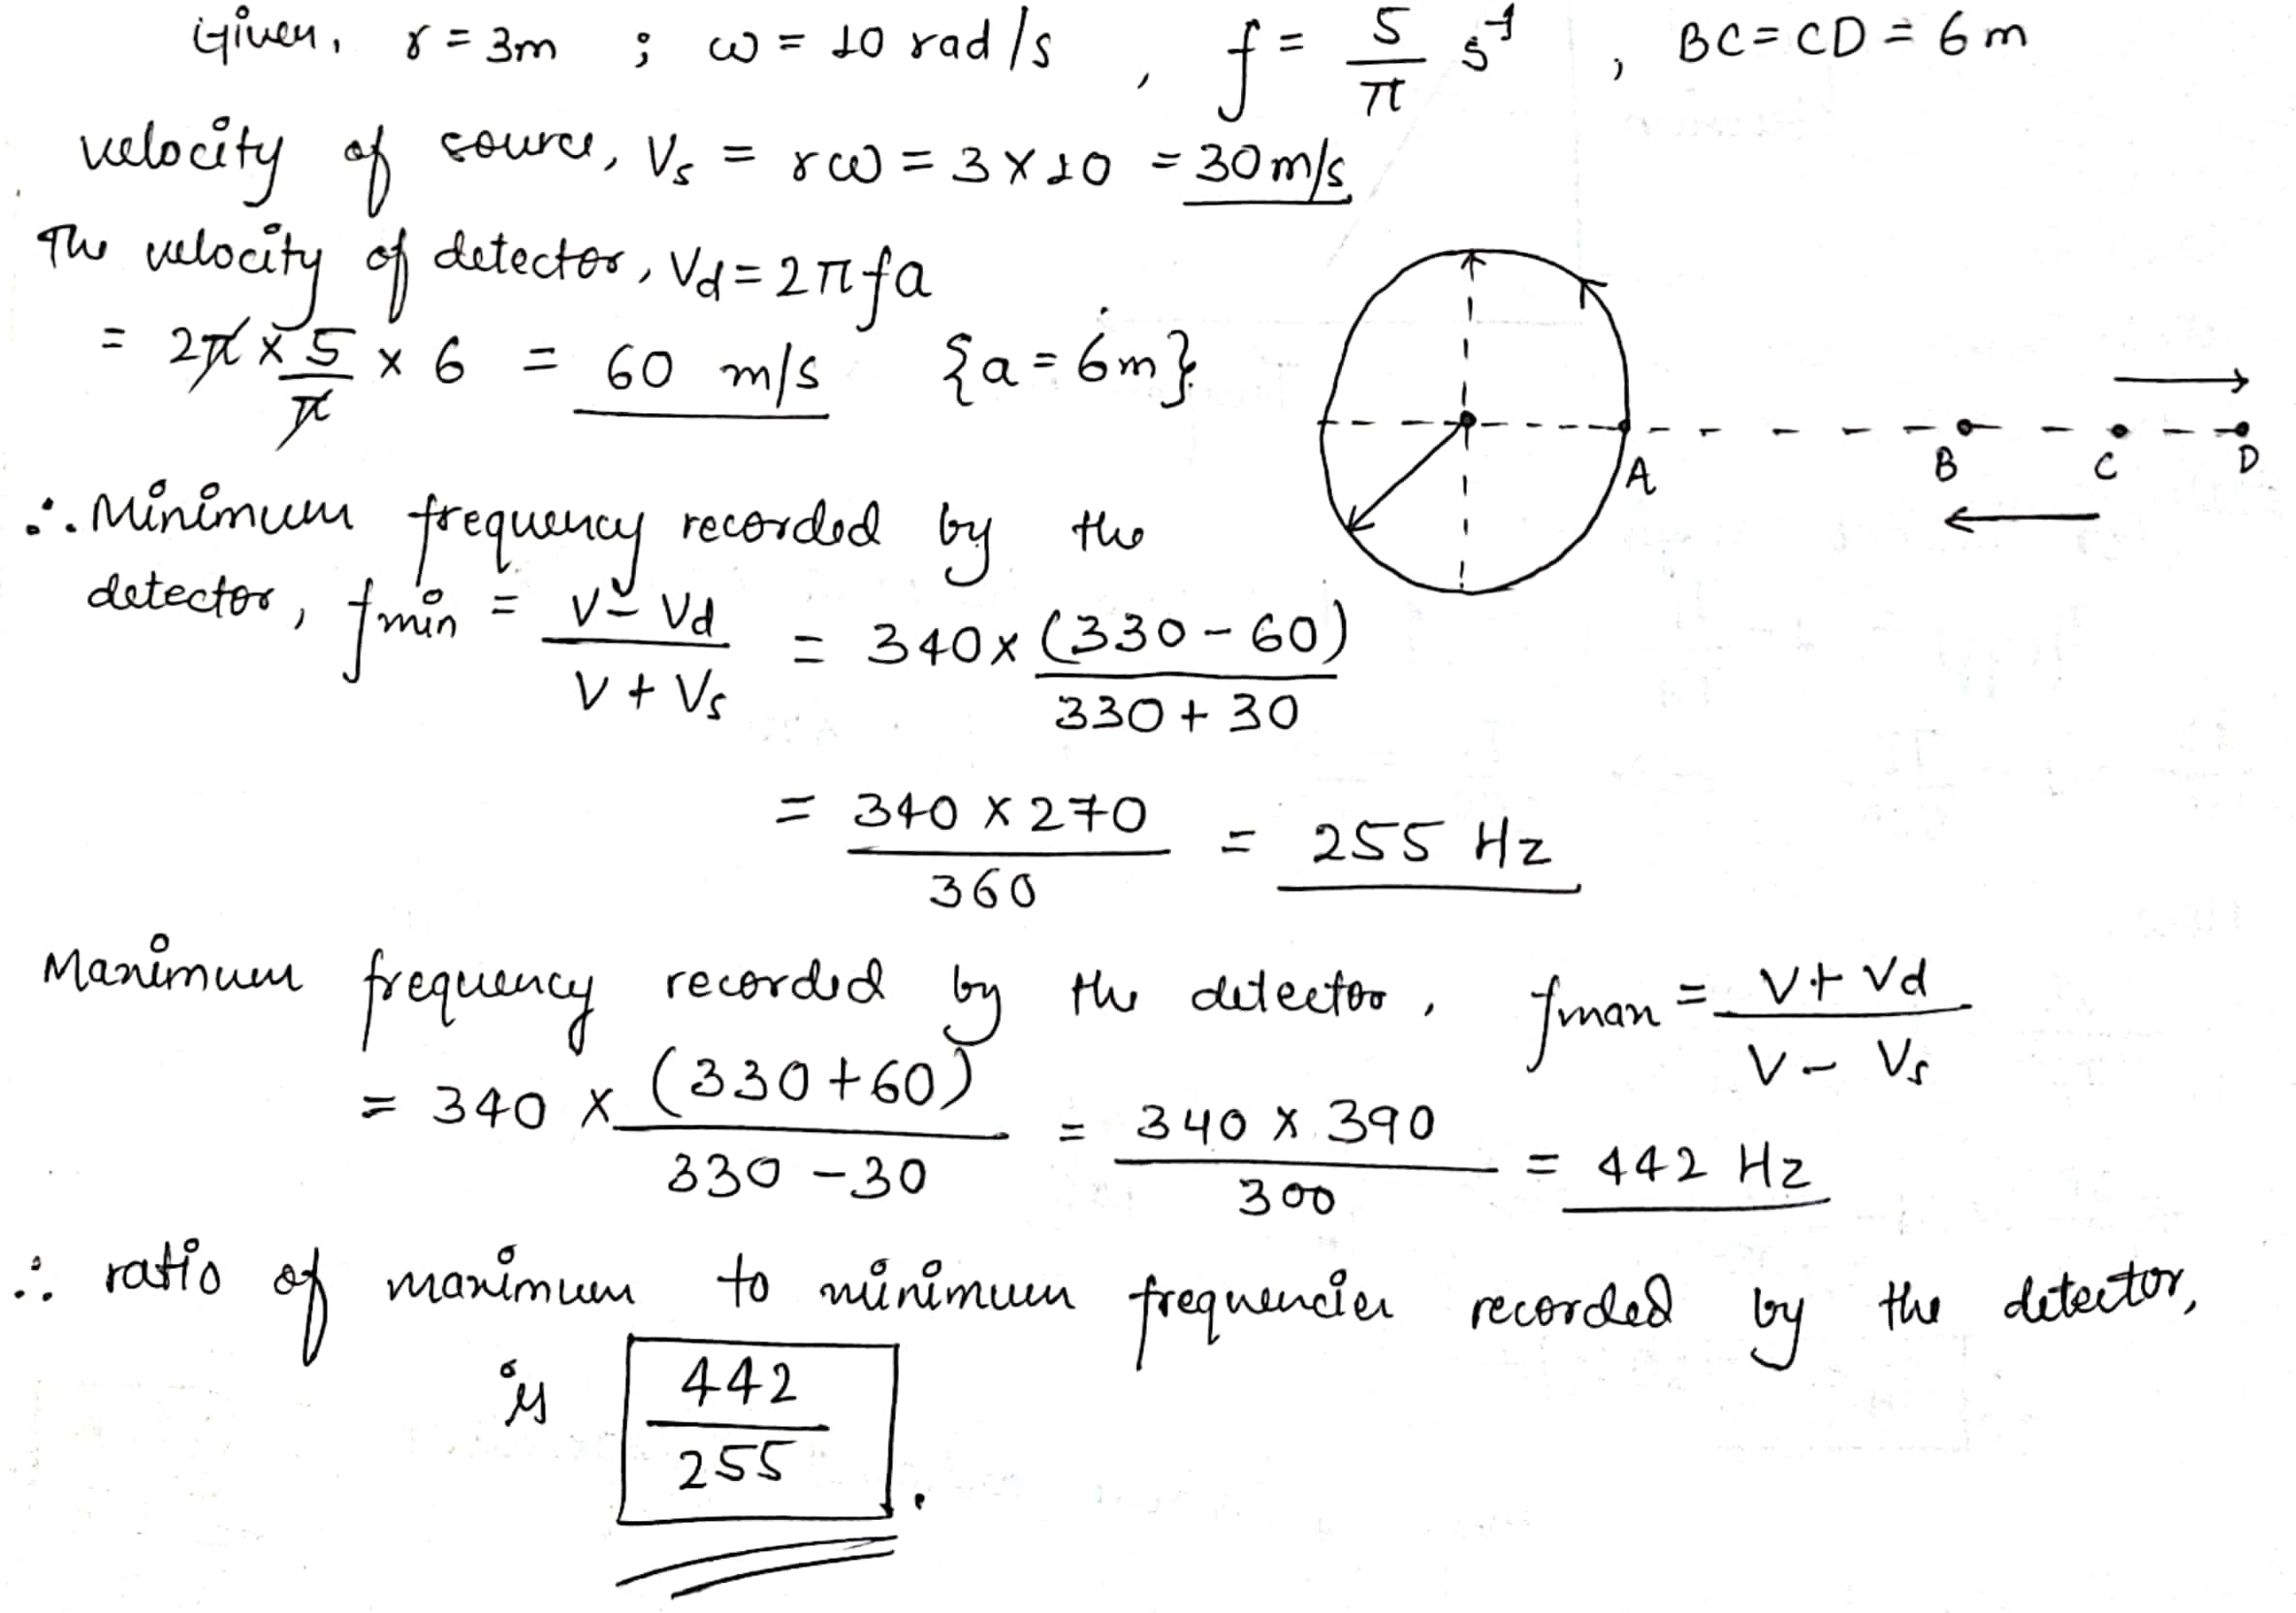 Given, r = 3m ; ω = 10 rad/s , f = 5/π s⁻¹ , BC = CD = 6 m
velocity of source, Vs = rω = 3 × 10 = 30 m/s.
The velocity of detector, Vd = 2πfa
= 2π × 5/π × 6 = 60 m/s {a = 6m}.
A B C D
∴ Minimum frequency recorded by the
detector, fmin = V - Vd / V + Vs = 340 × (330 - 60) / 330 + 30
= 340 × 270 / 360 = 255 Hz
Maximum frequency recorded by the detector, fmax = V + Vd / V - Vs
= 340 × (330 + 60) / 330 - 30 = 340 × 390 / 300 = 442 Hz
∴ ratio of maximum to minimum frequencies recorded by the detector,
is 442 / 255 .